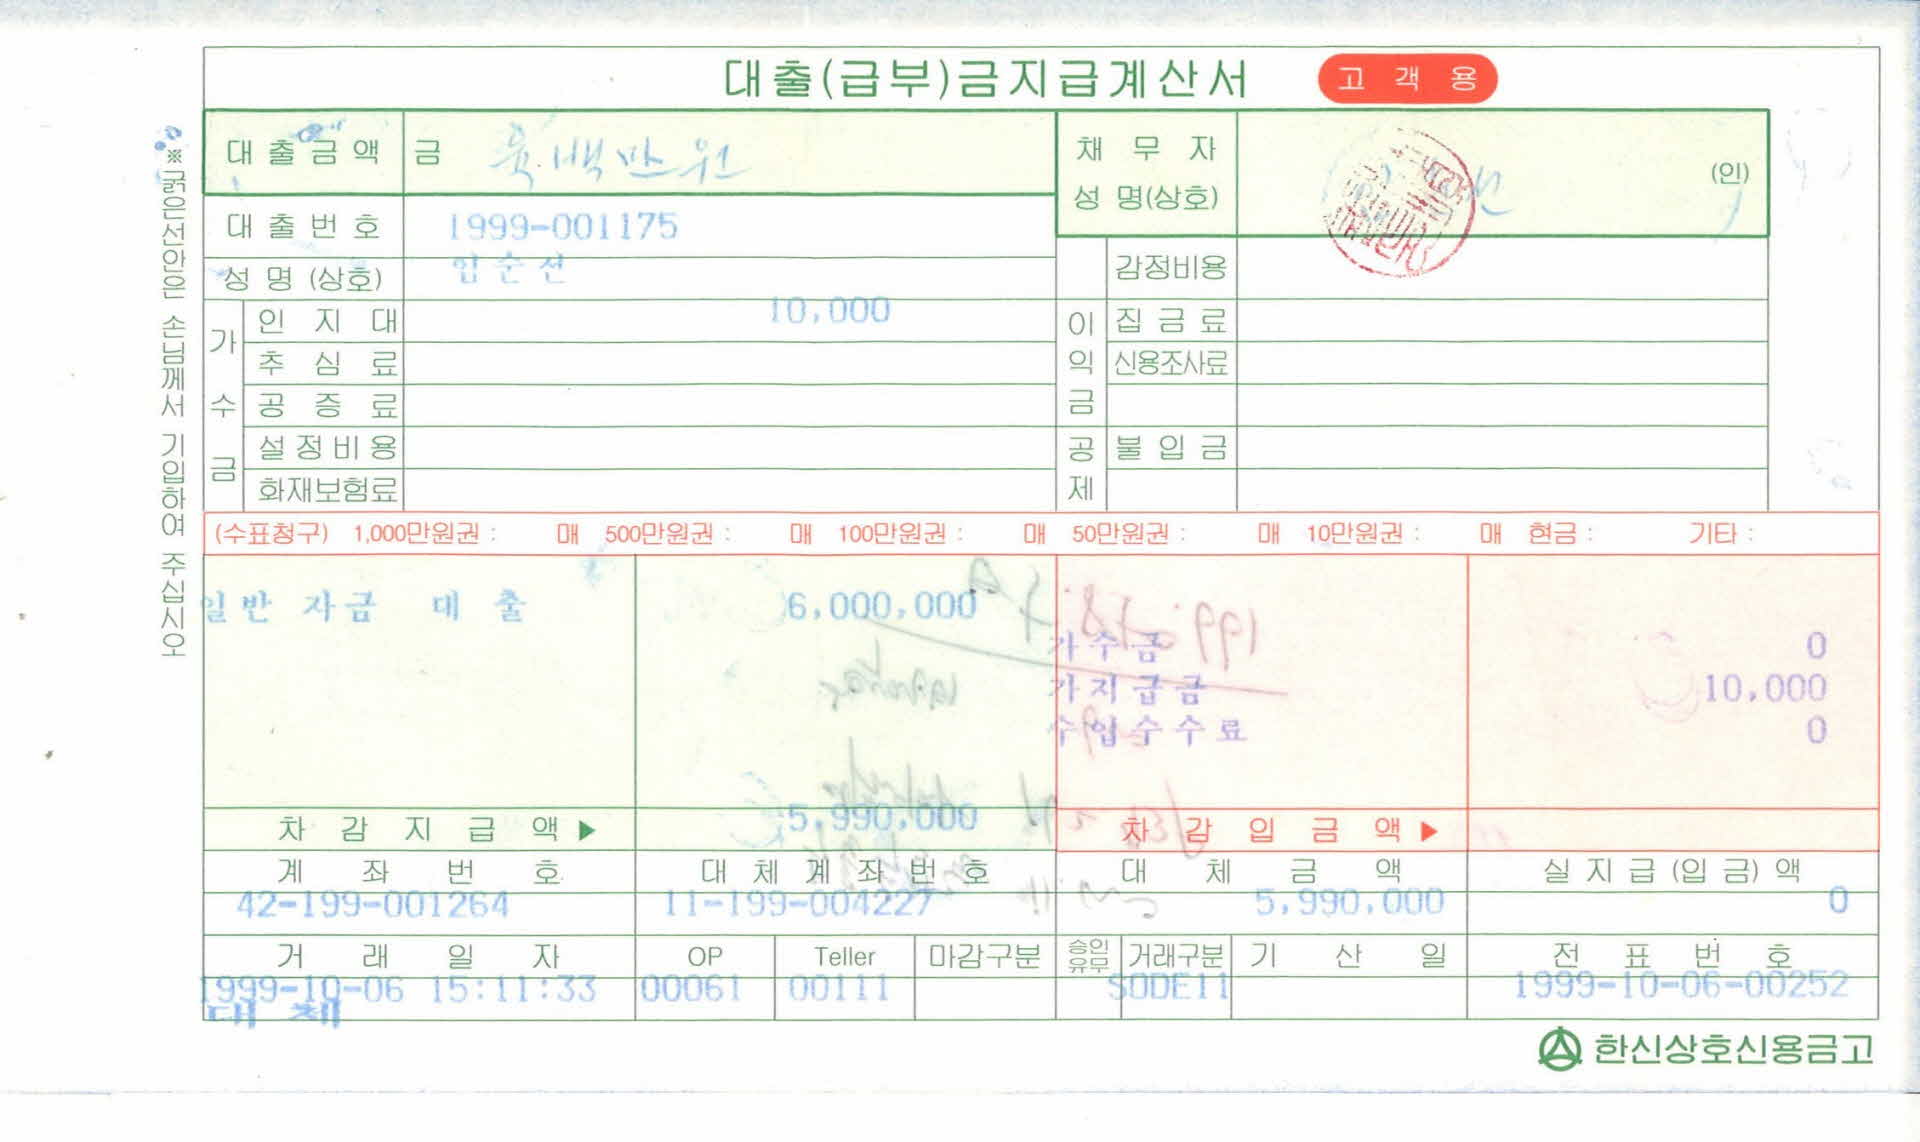 대출(급부)금지급계산서 고객용
※굵은선안은 손님께서 기입하여 주십시오
대출금액 금 육백만원
채무자 성명(상호) (인)
대출번호 1999-001175
성명(상호) 임순선
감정비용
가수금
인지대 10,000
추심료
공증료
설정비용
화재보험료
이익금공제
집금료
신용조사료
불입금
(수표청구) 1,000만원권 : 매 500만원권 : 매 100만원권 : 매 50만원권 : 매 10만원권 : 매 현금 : 기타 :
일반자금 대출 6,000,000
가수금 0
가지급금 10,000
수입수수료 0
차감지급액▶ 5,990,000 차감입금액▶
계좌번호 대체계좌번호 대체금액 실지급(입금)액
42-199-001264 11-199-004227 5,990,000 0
거래일자 OP Teller 마감구분 승인유무 거래구분 기산일 전표번호
1999-10-06 15:11:33 00061 00111 SODE11 1999-10-06-00252
대체
한신상호신용금고